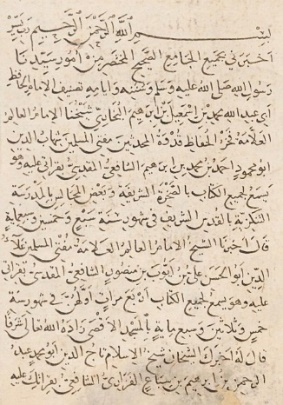 بسم الله الرحمن الرحيم رب يسر
اخبرني بجميع الجامع الصحيح المختصر من امور سيدنا
رسول الله صلى الله عليه وسلم وسننه وايامه تصنيف الامام الحافظ
ابي عبد الله محمد بن اسمعيل بن ابرهيم البخاري شيخنا الامام العالم
العلامة فخر الحفاظ قدوة المحدثين مفتي المسلمين شهاب الدين
ابو محمود احمد بن محمد بن ابرهيم الشافعي المقدسي بقراتي عليه وهو
يسمع لجميع الكتاب بالصخرة الشريفة وبعض المجالس بالمدرسة
التنكزية بالقدس الشريف في شهور سنة سبع وخمسين وسبعماية
قال اخبرنا الشيخ الامام العالم العلامة مفتي المسلمين علاء
الدين ابو الحسن علي بن ايوب بن منصور الشافعي المقدسي بقراتي
عليه وهو يسمع لجميع الكتاب اربع مرات اولهن في شهور سنة
خمس وثلاثين وسبع ماية بالمسجد الاقصى زاده الله تعالى شرفا
قال له اخبرك الشيخان شيخ الاسلام تاج الدين ابو محمد عبد
الرحمن بن ابرهيم بن سباع الفزاري الشافعي بقراتك عليه